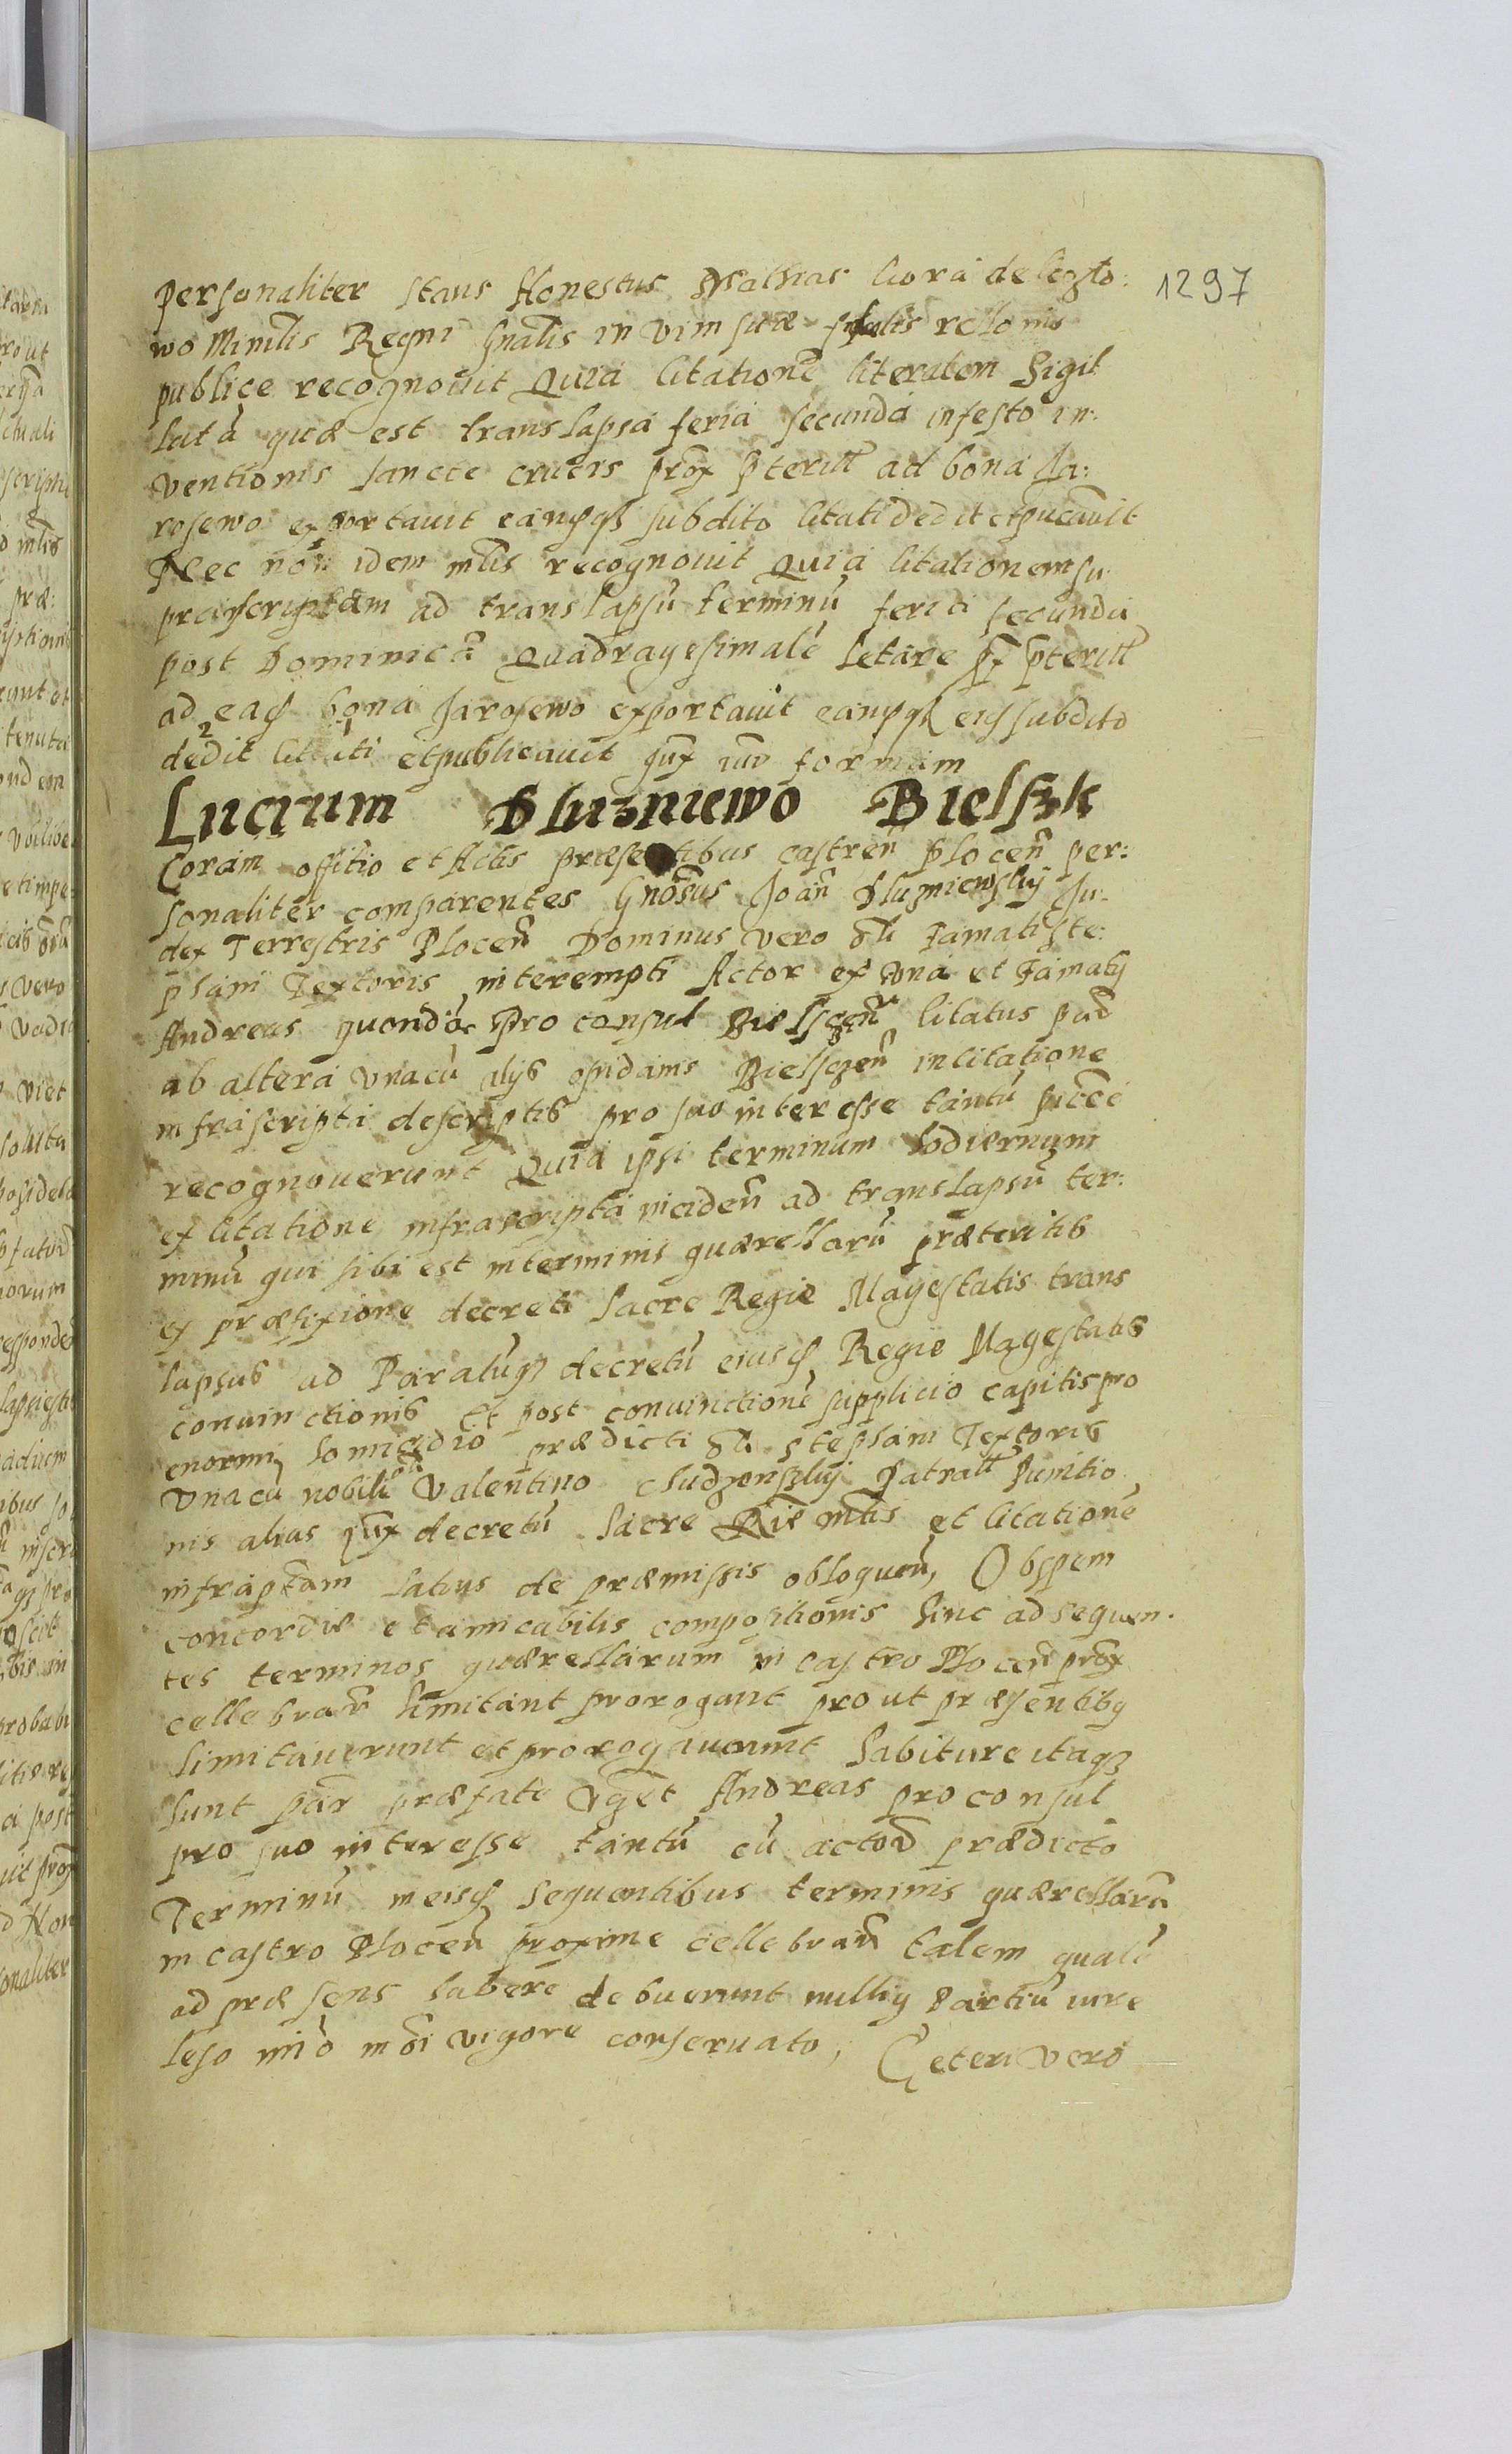 1297
personaliter stans Honestus Mathias liora de lezzto:
wo Minilis Regni Gnalis in vim suæ fidelis rellonis
publice recognovit Quia Citationē literatem Sigil
latā quæ est translapsa feria secunda in festo in:
ventionis sancte crucis prox pteritt ad bona Ja:
rosewo exportavit eamqz subdito Citati dedit et pucavit
Nec non idem mlis recognovit Quia Citationem su
prascriptam ad translapsū terminū feria secunda
post Dominicā Quadragesimalē Letare px pteritt
ad eaq bona Jarosewo exportavit eamqz eiq subdito
dedit Citati et publicavit qux iux formam
Lucrum Dluzniewo Bielszk
Coram offitio et Actis præsentibus castreñ Plocen̄ per:
sonaliter comparentes Gnosus Joān Dluzniewskÿ Ju:
dex Terrestris Plocen̄ Dominus vero ōli Famati Ste:
phani Textoris interempti Actor ex vna et Famatÿ
Andreas quondā Pro consul Bielscen̄ Citatus pād
ab altera vnacū alÿs opidanis Bielsczen̄ in citatione
infrascripta descriptis pro suo interesse tantū
recognoverunt Quia ipsi terminum hodiernum
ex citatione infrascripta inciden̄ ad translapsū ter:
minū qui sibi est in terminis quærellarū præteritis
ex præfixione decreti Sacre Regie Magestatis trans
lapsus ad Paratūqz decretū eiusq Regie Magestatis
convinctionis Et post convinctionē supplicio capitis pro
enormi homicidio prædicti ōli Stephani Textoris
vnacū nobili Valentino Chudzenszkÿ Patratt Punitio
nis alias qux decretū Sacre Rie Mtis et Citationē
infraptam latius de præmissis obloquen̄, Ob spem
concordiæ et amicabilis compositionis hinc ad sequen:
tes terminos quærellarum in castro Plocen̄ prox
cellebran̄ limitant prorogant prout præsentibq
limitaverunt et prorogaverunt habiture itaqz
sunt par præfate vzet Andreas pro consul
pro suo interesse tantū cū actore prædicto
Terminū in eisq sequentibus terminis quærellarū
in castro Plocen̄ proxime cellebran̄ talem qualē
ad præsens habere debuerunt nulliq Partiū iure
leso imo in ōi vigore conservato, Ceteri vero